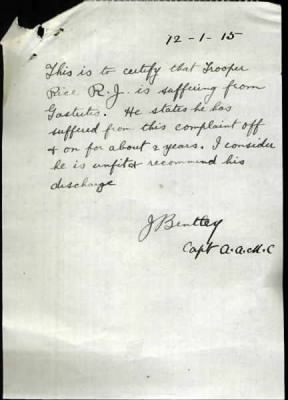 12-1-15
This is to certify that Trooper
Rice R.J. is suffering from
Gastritis. He states he has
suffered from this complaint off
& on for about 2 years. I consider
he is unfit & recommend his
discharge
J Bentley
Capt A.A.M.C